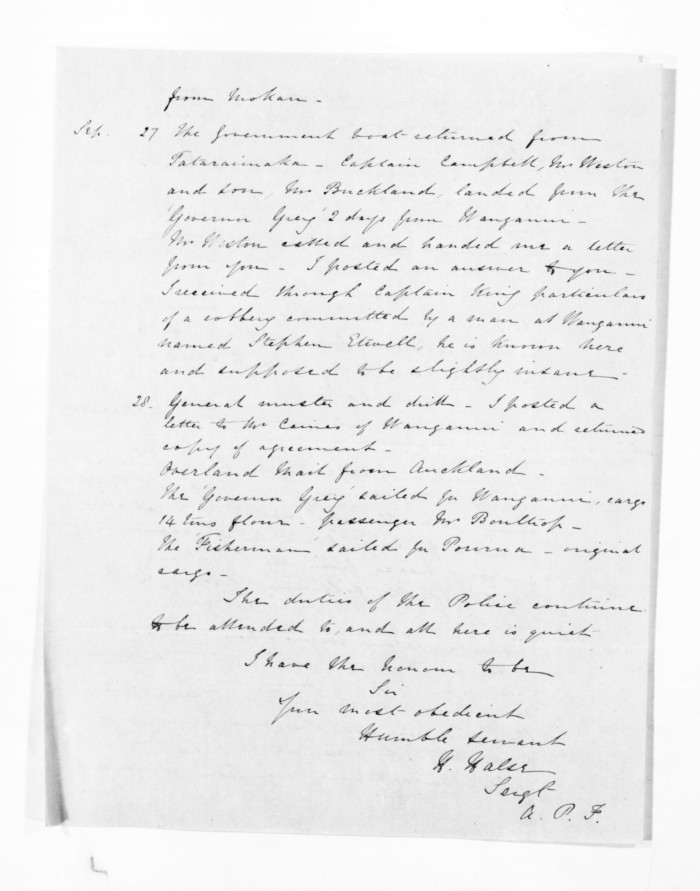 from Mokau -
Sep. 27 The Government boat returned from
Tataraimaka - Captain Campbell, Mr Weston
and son, Mr Buckland, landed from the
'Governor Grey' 2 days from Wanganui -
Mr Weston called and handed me a letter
from you - I posted an answer to you -
I received through Captain King particulars
of a robbery committed by a man at Wanganui
named Stephen Etwell, he is known here
and supposed to be slightly insane -
28. General muster and drill - I posted a
letter to Mr Caines of Wanganui and returned
copy of agreement -
Overland Mail from Auckland -
The 'Governor Grey' sailed for Wanganui, cargo
14 tuns flour - passenger Mr
The 'Fisherman' sailed for - original
cargo -
The duties of the Police continue
to be attended to, and all here is quiet
I have the honour to be
Sir
Your most obedient
Humble servant
H. Halse
Sergt
A. P. F.